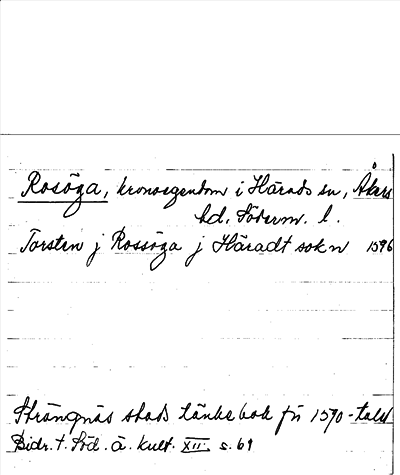 Rosöga, kronoegendom i Härads sn, Åkers
hd, Söderm. l.
Torsten j Rossöga j Häradt sokn 1596
Strängnäs stads tänkebok fr 1590-talet
Bidr. t. Söd. ä. kult. XII. s. 69